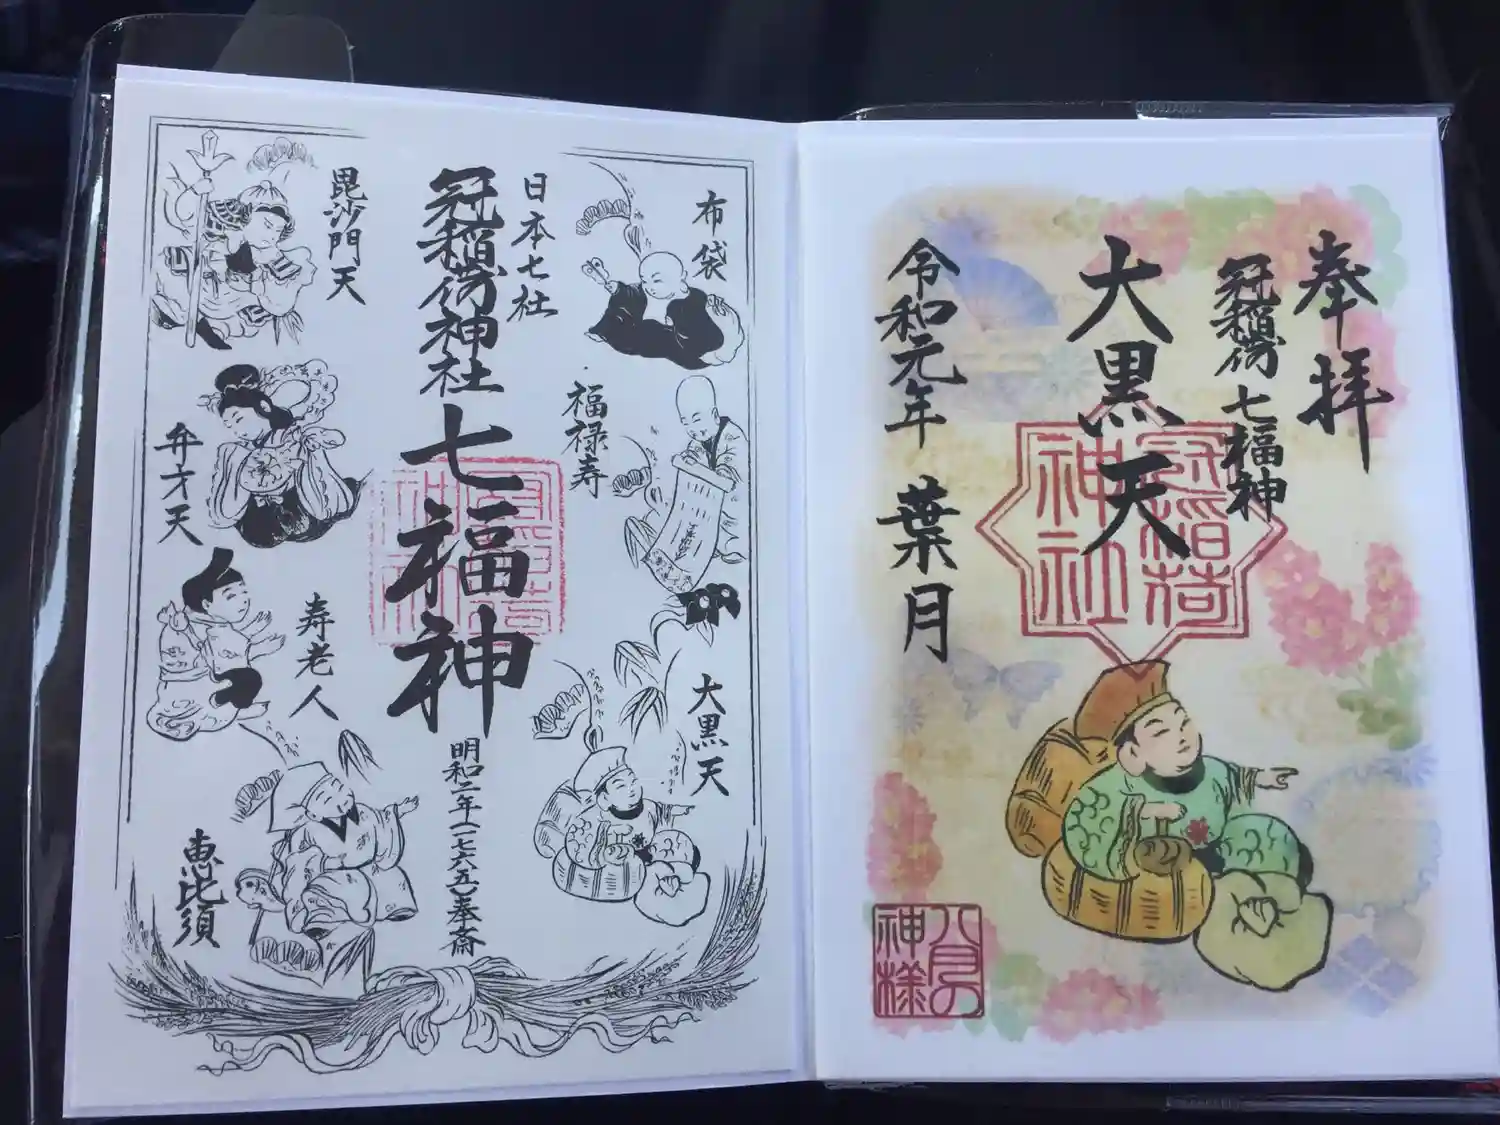 奉拝
冠稲荷 七福神
大黒天
令和元年 葉月
冠稲荷
神社
八月の
神様
布袋
福禄寿
大黒天
日本七社
冠稲荷神社 七福神
明和二年(一七六五)奉斎
毘沙門天
弁才天
寿老人
恵比須